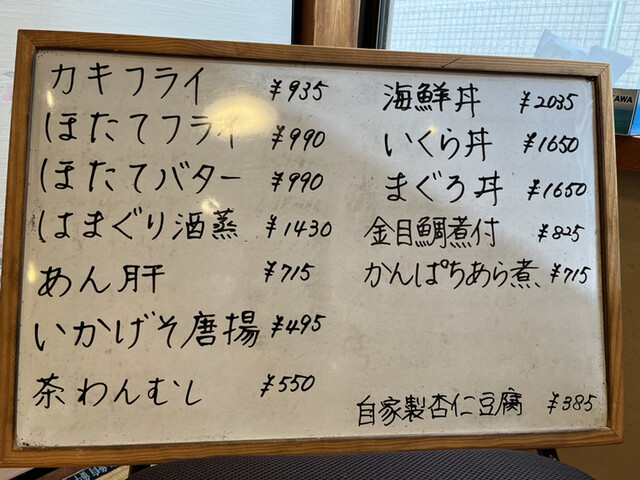 カキフライ ¥935
ほたてフライ ¥990
ほたてバター ¥990
はまぐり酒蒸 ¥1430
あん肝 ¥715
いかげそ唐揚 ¥495
茶わんむし ¥550
海鮮丼 ¥2035
いくら丼 ¥1650
まぐろ丼 ¥1650
金目鯛煮付 ¥825
かんぱちあら煮 ¥715
自家製杏仁豆腐 ¥385